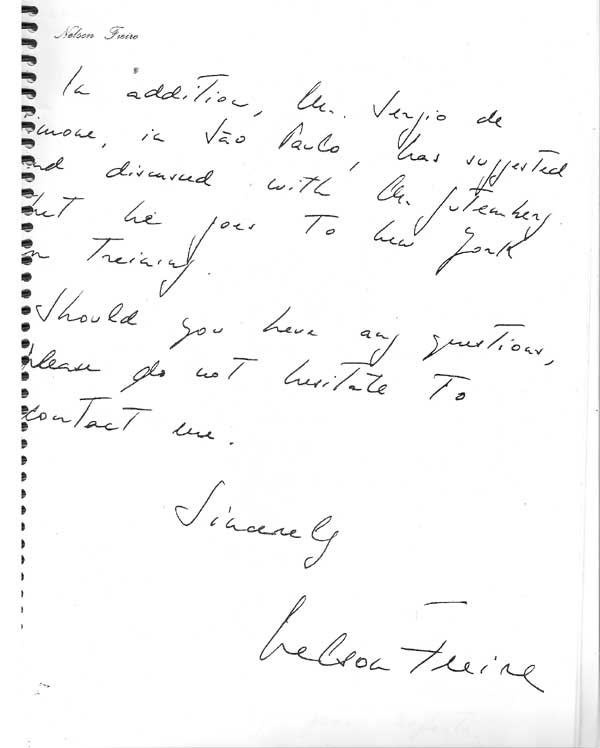 Nelson Freire
In addition, Mr. Sergio de
Simone, in São Paulo, has suggested
and discussed with Mr. Gutemberg
that he goes to New York
in Treining.
Should you have any questions,
please do not hesitate to
contact me.
Sincerely
Nelson Freire